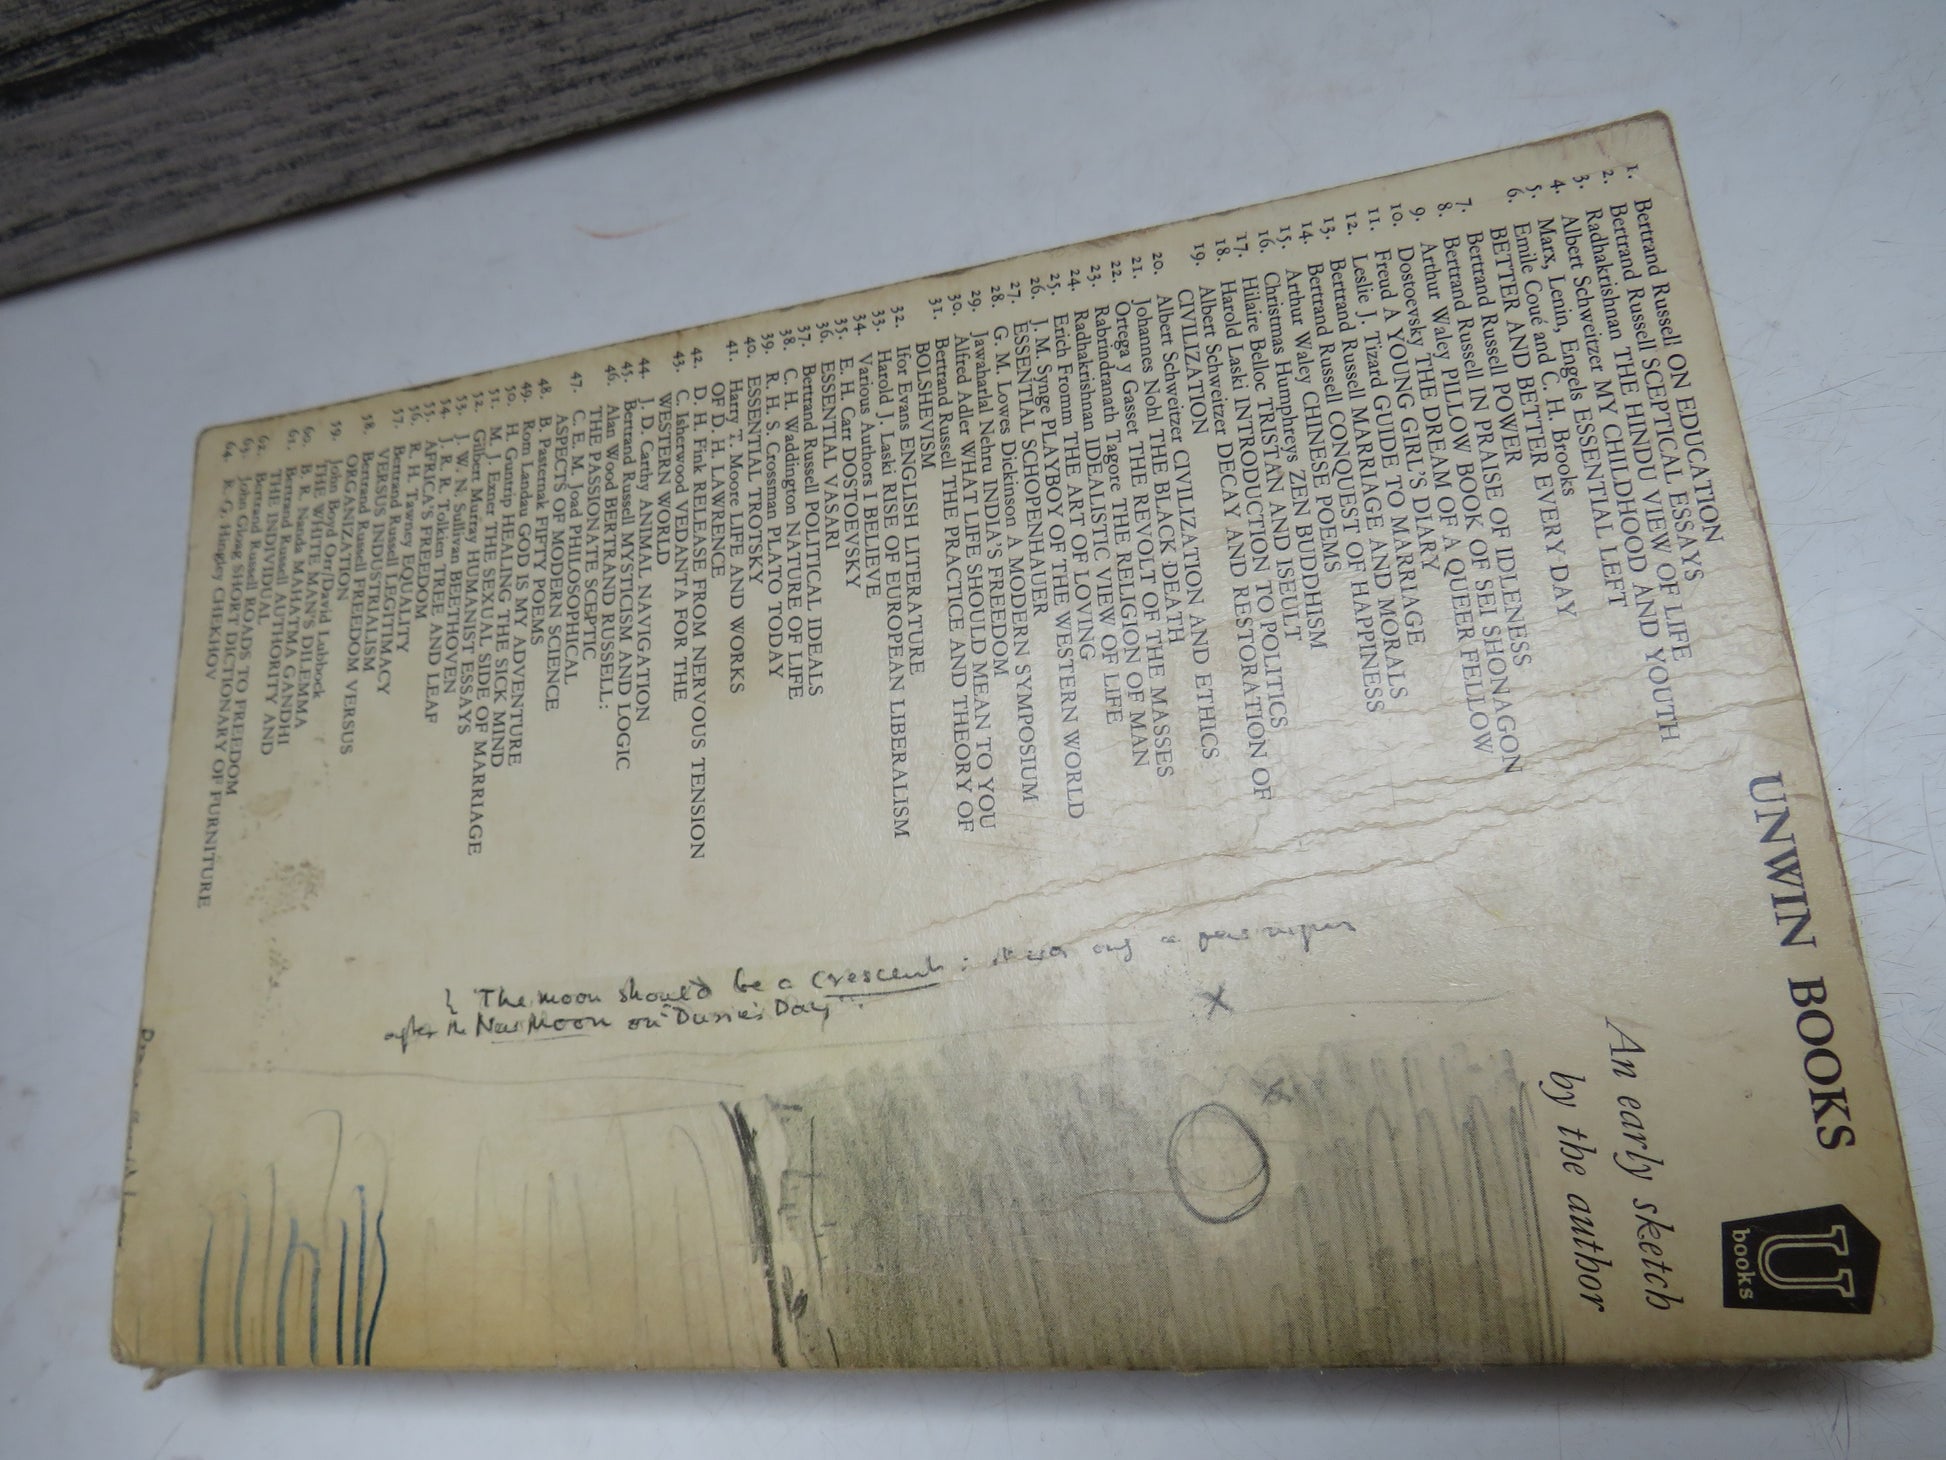 UNWIN BOOKS
U
books
An early sketch
by the author
1. Bertrand Russell ON EDUCATION
2. Bertrand Russell SCEPTICAL ESSAYS
3. Radhakrishnan THE HINDU VIEW OF LIFE
4. Albert Schweitzer MY CHILDHOOD AND YOUTH
5. Marx, Lenin, Engels ESSENTIAL LEFT
6. Emile Coué and C. H. Brooks
BETTER AND BETTER EVERY DAY
7. Bertrand Russell POWER
8. Bertrand Russell IN PRAISE OF IDLENESS
9. Arthur Waley PILLOW BOOK OF SEI SHONAGON
10. Dostoevsky THE DREAM OF A QUEER FELLOW
11. Freud A YOUNG GIRL'S DIARY
12. Leslie J. Tizard GUIDE TO MARRIAGE
13. Bertrand Russell MARRIAGE AND MORALS
14. Bertrand Russell CONQUEST OF HAPPINESS
15. Arthur Waley CHINESE POEMS
16. Christmas Humphreys ZEN BUDDHISM
17. Hilaire Belloc TRISTAN AND ISEULT
18. Harold Laski INTRODUCTION TO POLITICS
19. Albert Schweitzer DECAY AND RESTORATION OF
CIVILIZATION
20. Albert Schweitzer CIVILIZATION AND ETHICS
21. Johannes Nohl THE BLACK DEATH
22. Ortega y Gasset THE REVOLT OF THE MASSES
23. Rabrindranath Tagore THE RELIGION OF MAN
24. Radhakrishnan IDEALISTIC VIEW OF LIFE
25. Erich Fromm THE ART OF LOVING
26. J. M. Synge PLAYBOY OF THE WESTERN WORLD
27. ESSENTIAL SCHOPENHAUER
28. G. M. Lowes Dickinson A MODERN SYMPOSIUM
29. Jawaharlal Nehru INDIA'S FREEDOM
30. Alfred Adler WHAT LIFE SHOULD MEAN TO YOU
31. Bertrand Russell THE PRACTICE AND THEORY OF
BOLSHEVISM
32. Ifor Evans ENGLISH LITERATURE
33. Harold J. Laski RISE OF EUROPEAN LIBERALISM
34. Various Authors I BELIEVE
35. E. H. Carr DOSTOEVSKY
36. ESSENTIAL VASARI
37. Bertrand Russell POLITICAL IDEALS
38. C. H. Waddington NATURE OF LIFE
39. R. H. S. Crossman PLATO TODAY
40. ESSENTIAL TROTSKY
41. Harry T. Moore LIFE AND WORKS
OF D. H. LAWRENCE
42. D. H. Fink RELEASE FROM NERVOUS TENSION
43. C. Isherwood VEDANTA FOR THE
WESTERN WORLD
44. J. D. Carthy ANIMAL NAVIGATION
45. Bertrand Russell MYSTICISM AND LOGIC
46. Alan Wood BERTRAND RUSSELL:
THE PASSIONATE SCEPTIC
47. C. E. M. Joad PHILOSOPHICAL
ASPECTS OF MODERN SCIENCE
48. B. Pasternak FIFTY POEMS
49. Rom Landau GOD IS MY ADVENTURE
50. H. Guntrip HEALING THE SICK MIND
51. M. J. Exner THE SEXUAL SIDE OF MARRIAGE
52. Gilbert Murray HUMANIST ESSAYS
53. J. W. N. Sullivan BEETHOVEN
54. J. R. R. Tolkien TREE AND LEAF
55. AFRICA'S FREEDOM
56. R. H. Tawney EQUALITY
57. Bertrand Russell LEGITIMACY
VERSUS INDUSTRIALISM
58. Bertrand Russell FREEDOM VERSUS
ORGANIZATION
59. John Boyd Orr/David Lubbock
THE WHITE MAN'S DILEMMA
60. B. R. Nanda MAHATMA GANDHI
61. Bertrand Russell AUTHORITY AND
THE INDIVIDUAL
62. Bertrand Russell ROADS TO FREEDOM
63. John Gloag SHORT DICTIONARY OF FURNITURE
64. R. G. Hingley CHEKHOV
The moon should be a crescent: it was only a few nights
after the New Moon on "Durin's Day".